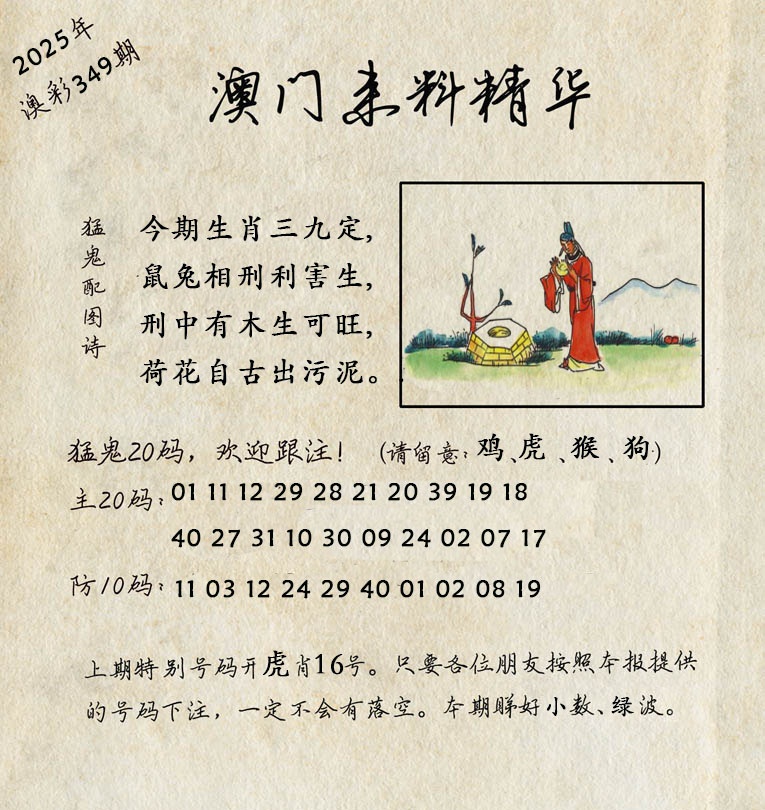 2025年
澳彩349期
澳门来料精华
猛鬼配图诗
今期生肖三九定,
鼠兔相刑利害生,
刑中有木生可旺,
荷花自古出污泥。
猛鬼20码，欢迎跟注！（请留意：鸡、虎、猴、狗）
主20码：01 11 12 29 28 21 20 39 19 18
40 27 31 10 30 09 24 02 07 17
防10码：11 03 12 24 29 40 01 02 08 19
上期特别号码开虎肖16号。只要各位朋友按照本报提供
的号码下注，一定不会有落空。本期睇好小数、绿波。